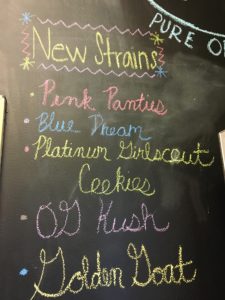 PURE O
New Strains
Pink Panties
Blue Dream
Platinum Girlscout
Cookies
OG Kush
Golden Goat